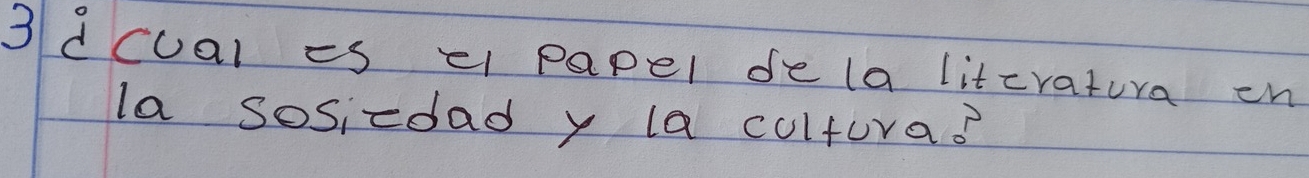 3 ¿cual es el papel de la literatura en
la sosiedad y la cultura?